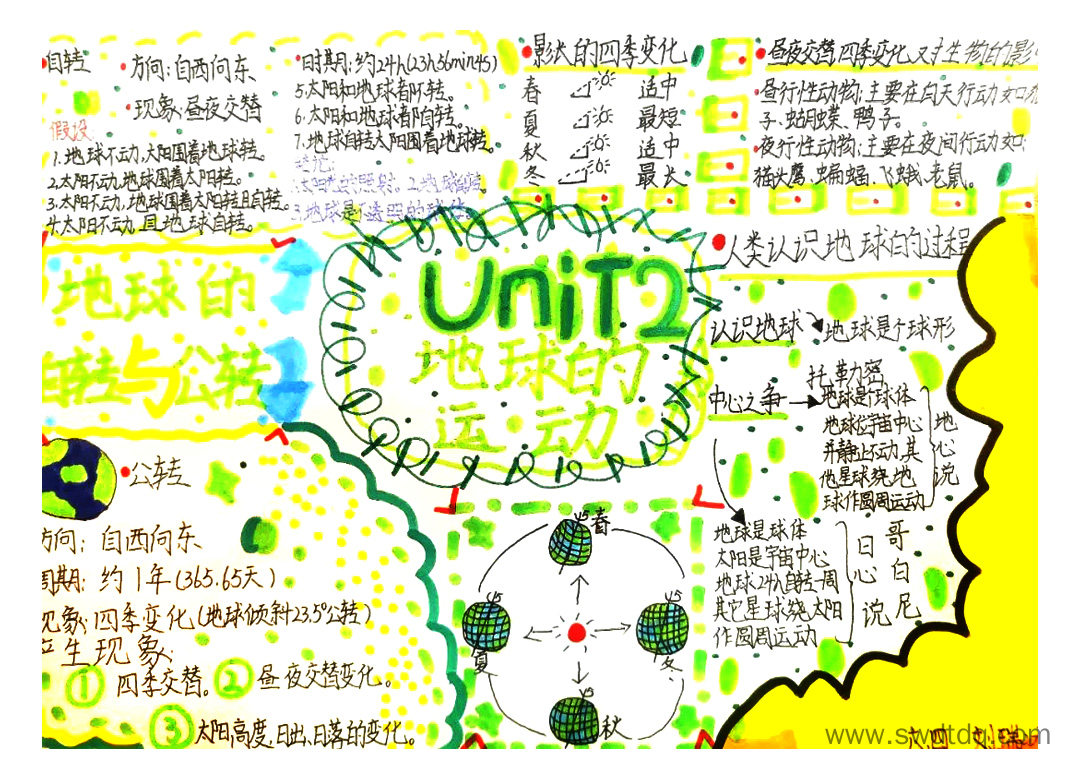 自转
方向:自西向东
现象:昼夜交替
时期:约24h(23h56min4S)
假设
1.地球不动,太阳围着地球转。
2.太阳不动,地球围着太阳转。
3.太阳不动,地球围着太阳转且自转。
4.太阳不动,且地球自转。
5.太阳和地球都不转。
6.太阳和地球都自转。
7.地球自转太阳围着地球转。
2.地球自转。
影长的四季变化
春 适中
夏 最短
秋 适中
冬 最长
昼夜交替,四季变化,对生物的影
昼行性动物:主要在白天行动如
子、蛞蝴蝶、鸭子。
夜行性动物:主要在夜间行动如:
猫头鹰、蝙蝠、飞蛾、老鼠。
地球的
自转与公转
UniT2
地球的
运动
人类认识地球的过程
认识地球
地球是个球形
中心之争
托勒密
地球是球体
地球位宇宙中心
并静止不动,其
他星球绕地
球作圆周运动
地心说
地球是球体
太阳是宇宙中心
地球24h自转一周
其它星球绕太阳
作圆周运动
日心说
哥白尼
公转
方向:自西向东
周期:约1年(365.65天)
现象:四季变化(地球倾斜23.5°公转)
产生现象:
① 四季交替。② 昼夜交替变化。
③ 太阳高度,日出,日落的变化。
春
夏
冬
秋